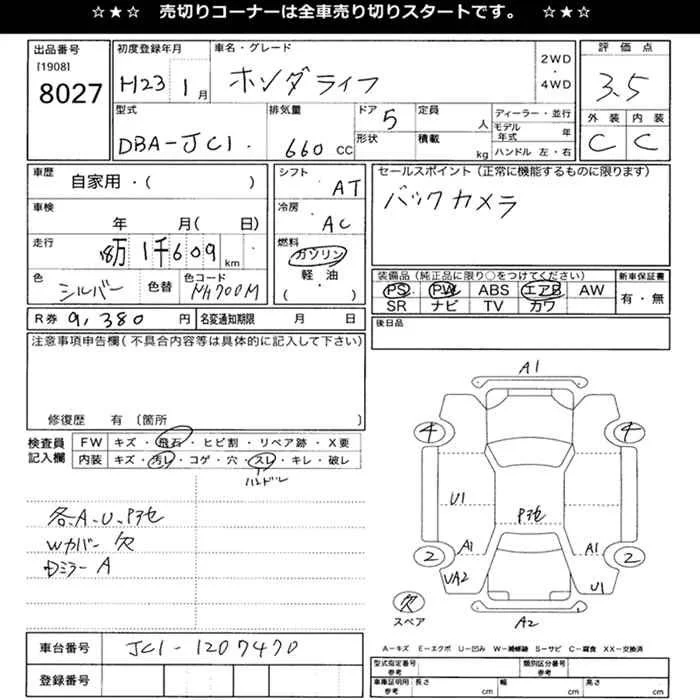 ☆★☆ 売切りコーナーは全車売り切りスタートです。 ☆★☆
出品番号
[1908]
8027
初度登録年月
H23 1月
車名・グレード
ホンダライフ
2WD
・
4WD
評価点
3.5
外装 内装
C C
型式
DBA-JC1
排気量
660 CC
ドア
5
形状
定員
人
積載
kg
ディーラー・並行
モデル年式 年
ハンドル 左・右
車歴
自家用・( )
シフト
AT
セールスポイント (正常に機能するものに限ります)
バックカメラ
車検
年 月( 日)
冷房
AC
走行
18万1千609 km
燃料
ガソリン
軽・油
( )
色
シルバー
色替
色コード
NH700M
装備品 (純正品に限り○をつけてください)
PS PW ABS エアB AW
SR ナビ TV カワ
新車保証書
有・無
R券 9,380 円
名変通知期限 月 日
後日品
注意事項申告欄 (不具合内容等は具体的に記入して下さい)
修復歴 有 〔箇所 〕
検査員
記入欄
FW キズ・飛石・ヒビ割・リペア跡・X要
内装 キズ・汚レ・コゲ・穴・スレ・キレ・破レ
ハンドル
各A.U.P他
Wカバー欠
Dミラー A
A1
4
4
U1
P他
2
A1
A1
2
UA2
U1
欠
スペア
A2
A-キズ E-エクボ U-凹み W-補修跡 S-サビ C-腐食 XX-交換済
車台番号
JC1-1207470
登録番号
型式指定番号
参考
類別区分番号
参考
車庫証明用
参考
長さ cm
幅 cm
高さ cm